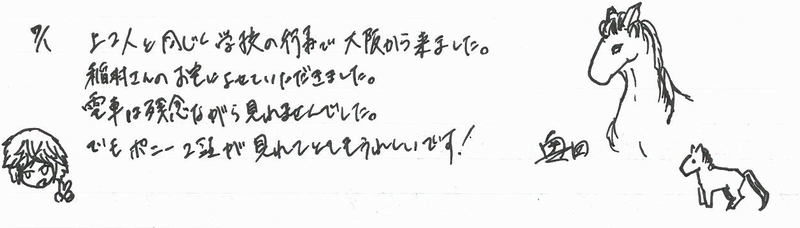 7/1 上2人と同じく学校の行事で大阪から来ました。
稲村さんのお宅によせていただきました。
電車は残念ながら見れませんでした。
でもポニー2頭が見れてとてもうれしいです！
奥田